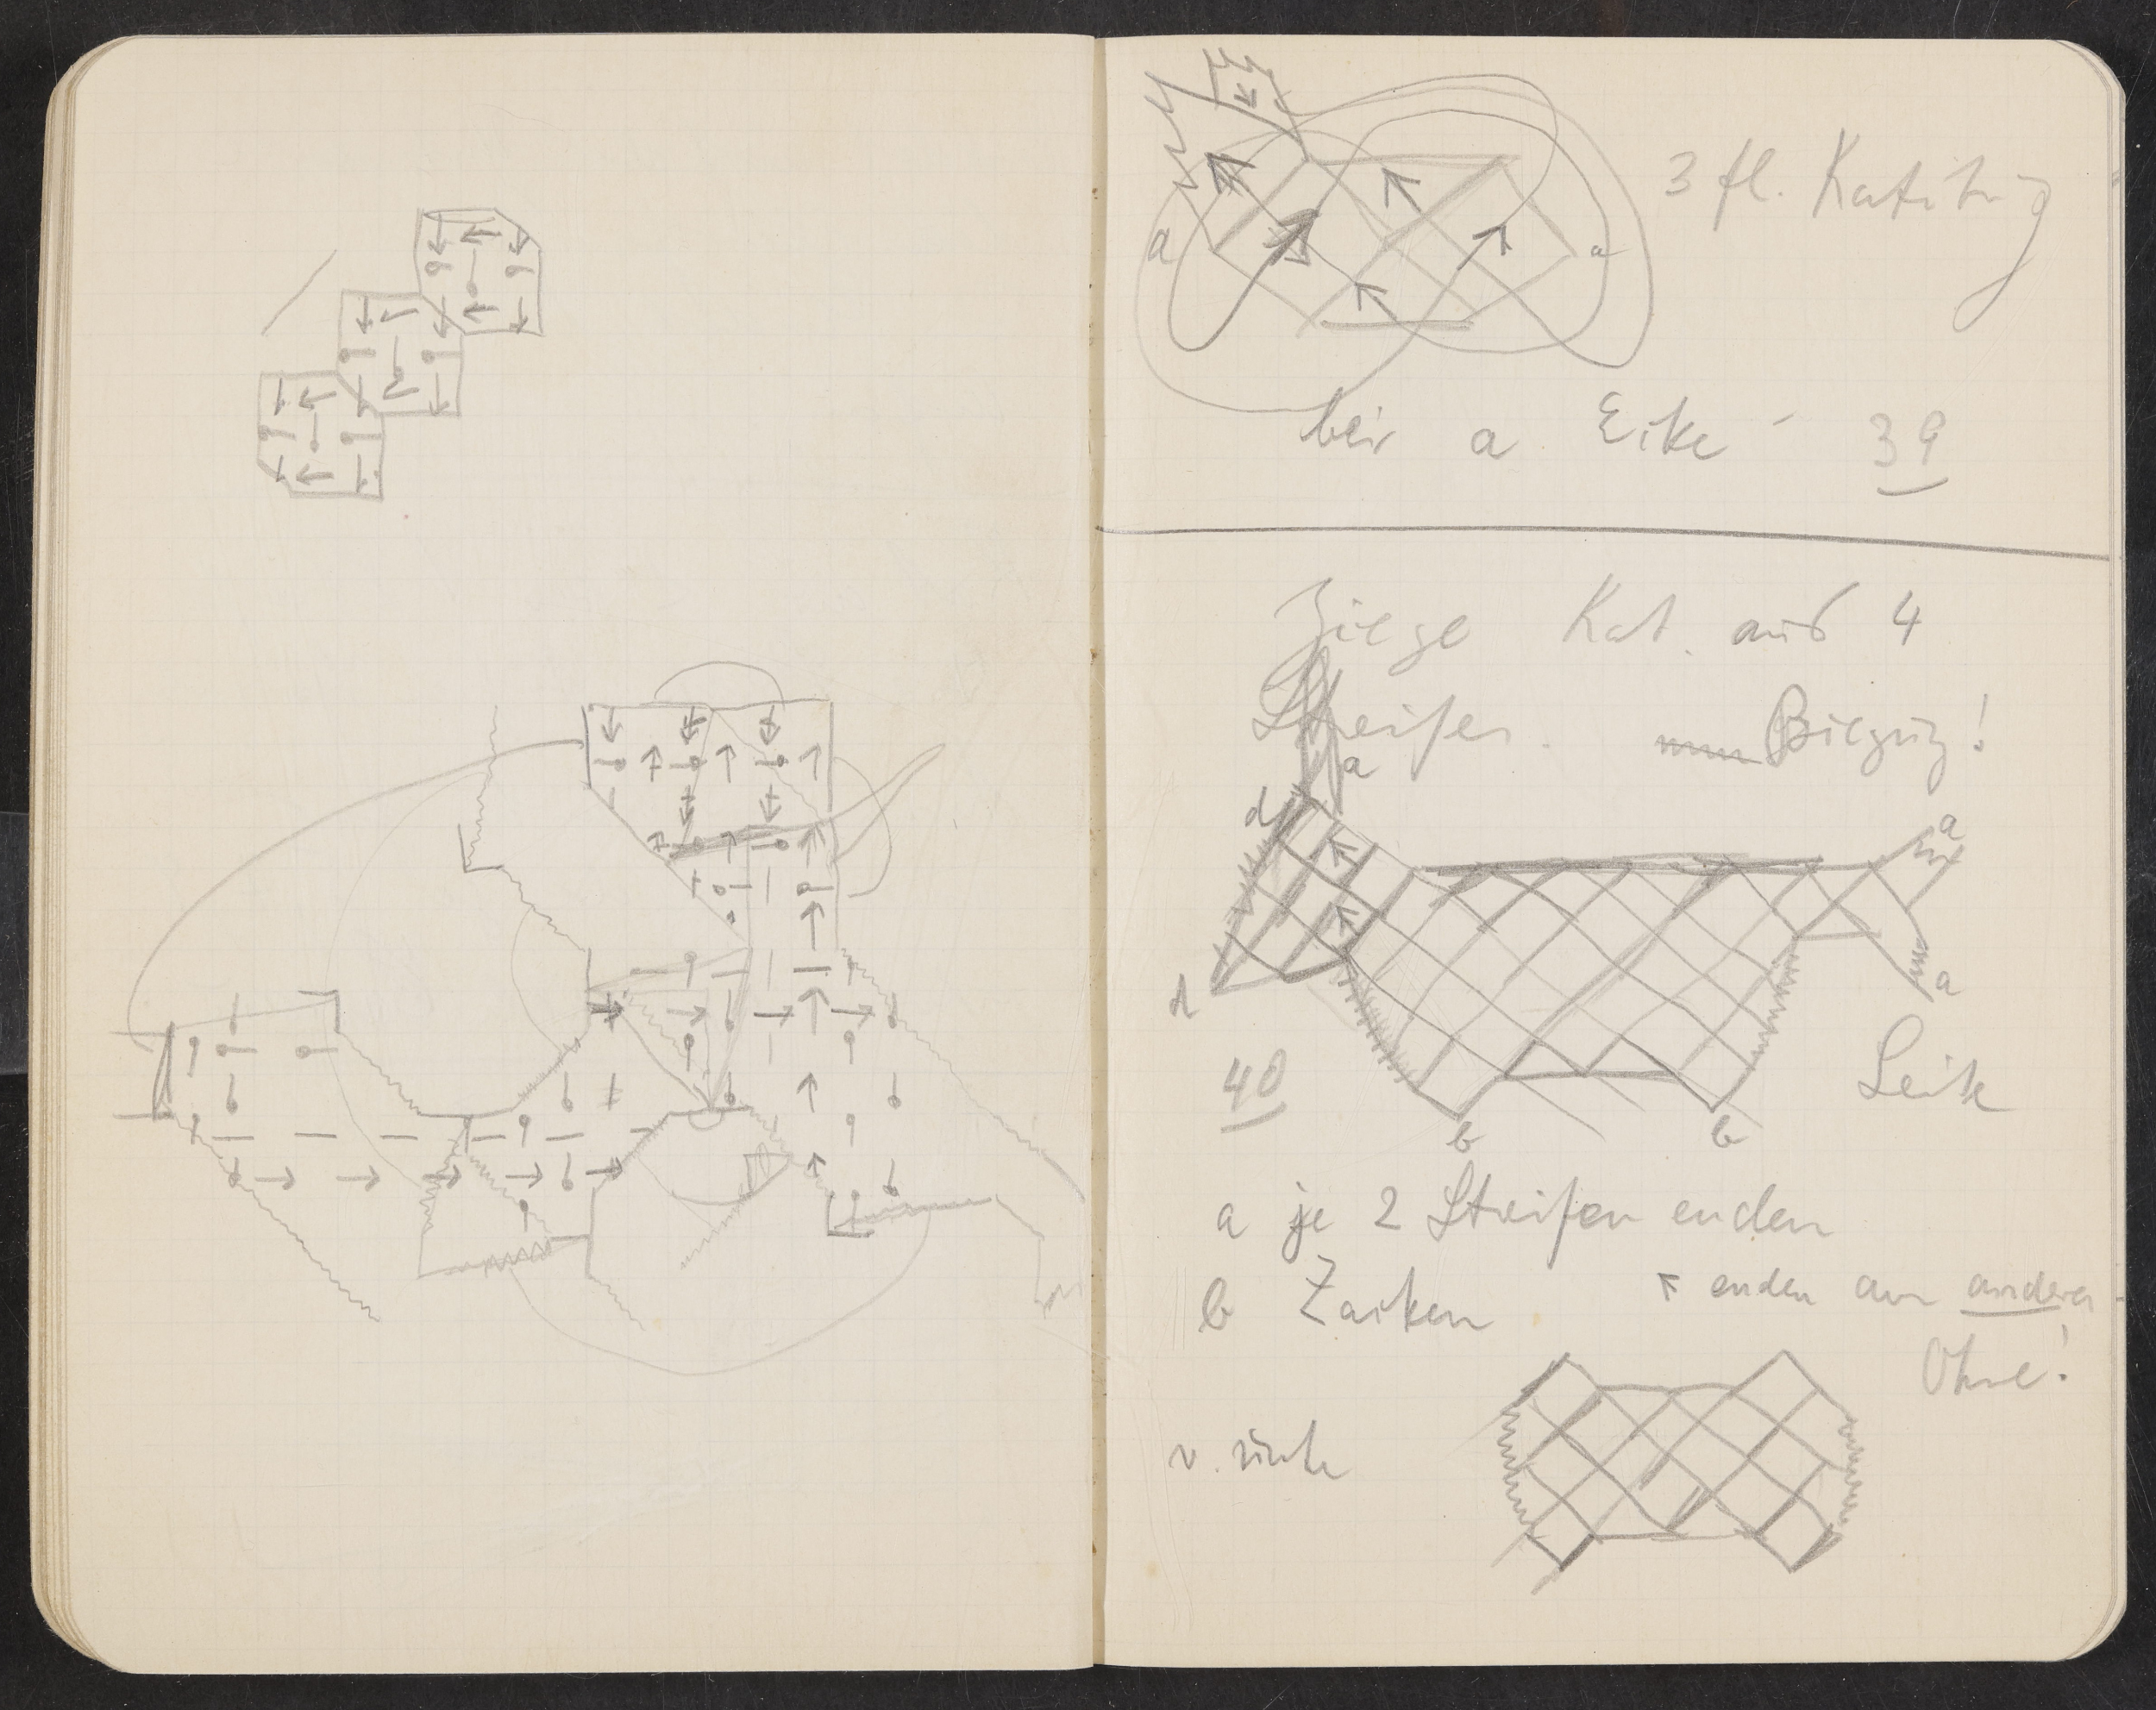 3 fl.
a
a
bei a Ecke
39
Ziege Kat. aus 4
Streifen. Biegung!
a
d
a
d
a
40
Seite
b
b
a je 2 Streifen enden
b Zacken
enden am anderen
Ohre!